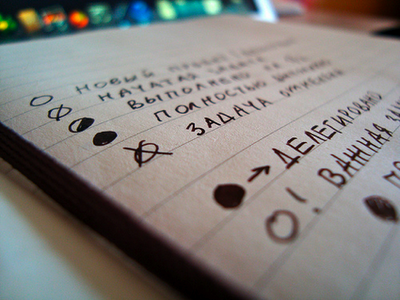 НОВЫЙ ПРОЕКТ
НАЧАТАЯ РАБОТА
ВЫПОЛНЕНО НА
ПОЛНОСТЬЮ ВЫПОЛНЕНО
ЗАДАЧА ОТМЕНЕНА
→ ДЕЛЕГИРОВАНО
! ВАЖНАЯ